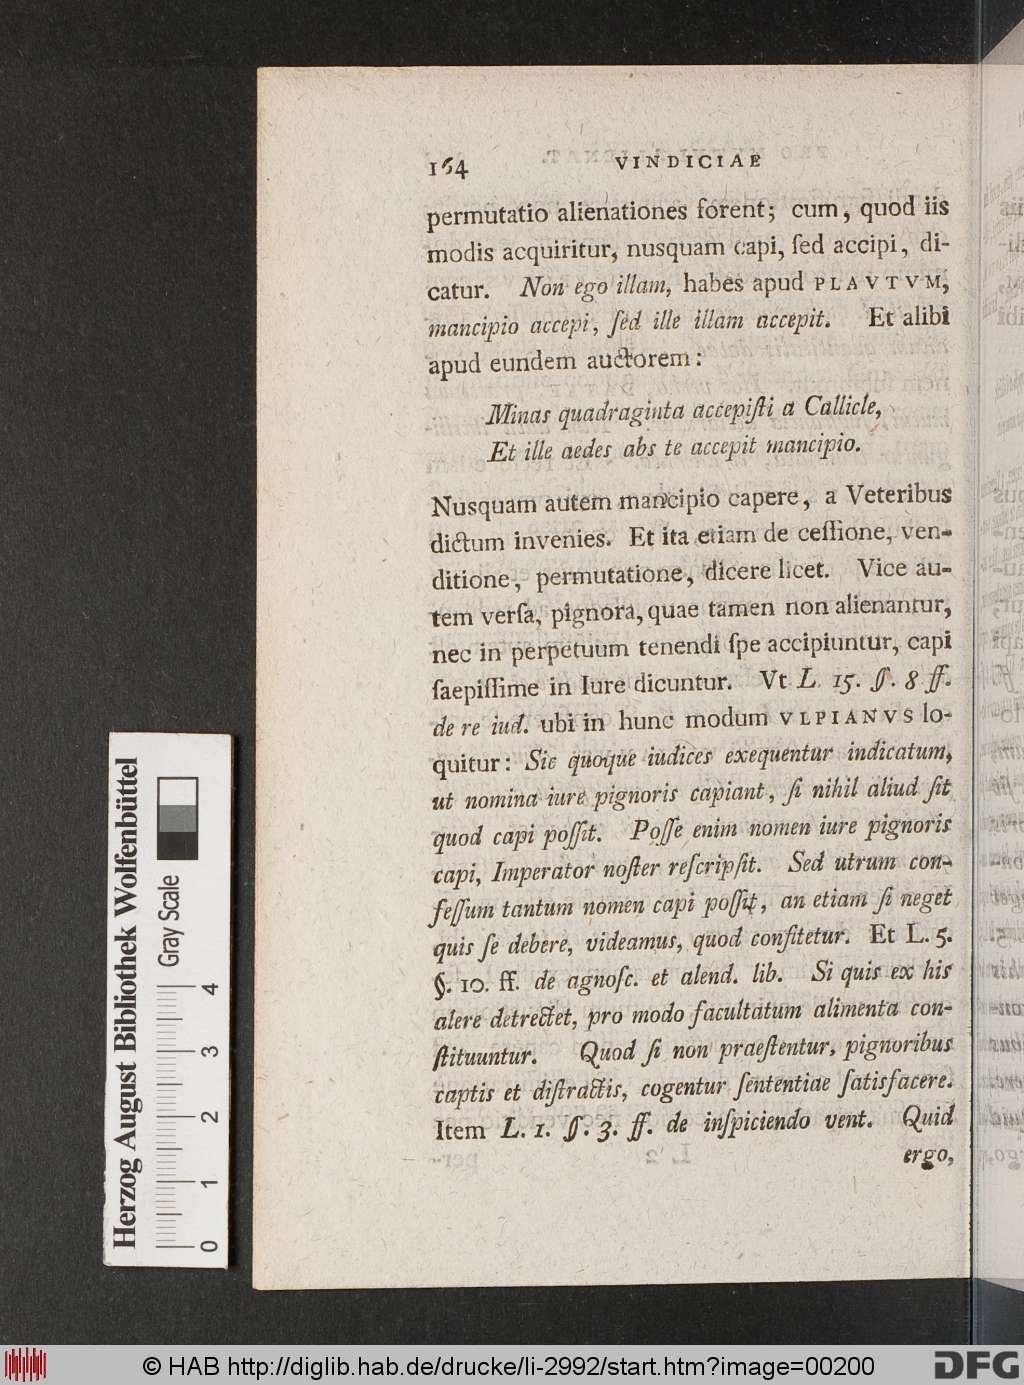 164 VINDICIAE
permutatio alienationes forent; cum, quod iis
modis acquiritur, nusquam capi, ſed accipi, di-
catur. Non ego illam, habes apud PLAVTVM,
mancipio accepi, ſed ille illam accepit. Et alibi
apud eundem auctorem:
Minas quadraginta accepiſti a Callicle,
Et ille aedes abs te accepit mancipio.
Nusquam autem mancipio capere, a Veteribus
dictum invenies. Et ita etiam de ceſſione, ven-
ditione, permutatione, dicere licet. Vice au-
tem verſa, pignora, quae tamen non alienantur,
nec in perpetuum tenendi ſpe accipiuntur, capi
ſaepiſſime in Iure dicuntur. Vt L. 15. §. 8 ff.
de re iud. ubi in hunc modum VLPIANVS lo-
quitur: Sic quoque iudices exequentur indicatum,
ut nomina iure pignoris capiant, ſi nihil aliud ſit
quod capi poſſit. Poſſe enim nomen iure pignoris
capi, Imperator noſter reſcripſit. Sed utrum con-
feſſum tantum nomen capi poſſit, an etiam ſi neget
quis ſe debere, videamus, quod confitetur. Et L. 5.
§. 10. ff. de agnoſc. et alend. lib. Si quis ex his
alere detrectet, pro modo facultatum alimenta con-
ſtituuntur. Quod ſi non praeſtentur, pignoribus
captis et diſtractis, cogentur ſententiae ſatisfacere.
Item L. 1. §. 3. ff. de inſpiciendo vent. Quid
ergo,
Herzog August Bibliothek Wolfenbüttel
Gray Scale
0 1 2 3 4
© HAB http://diglib.hab.de/drucke/li-2992/start.htm?image=00200
DFG